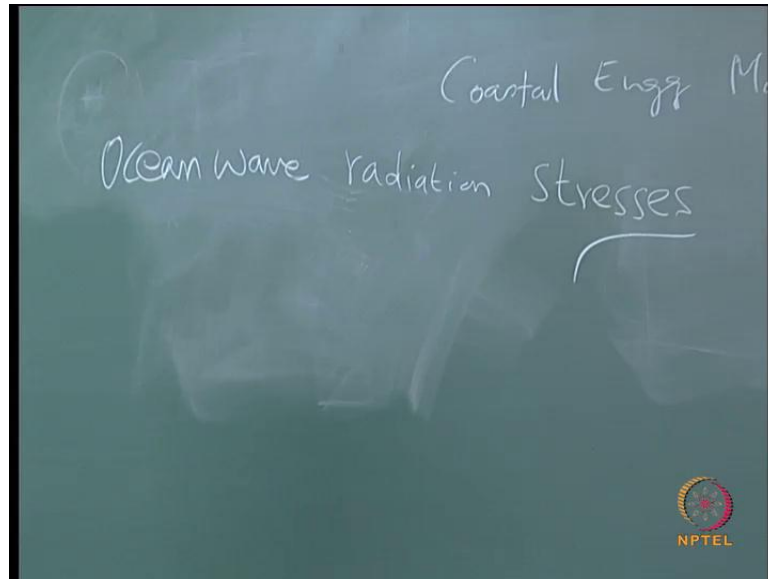 Coastal Engg
Ocean wave radiation Stresses
NPTEL